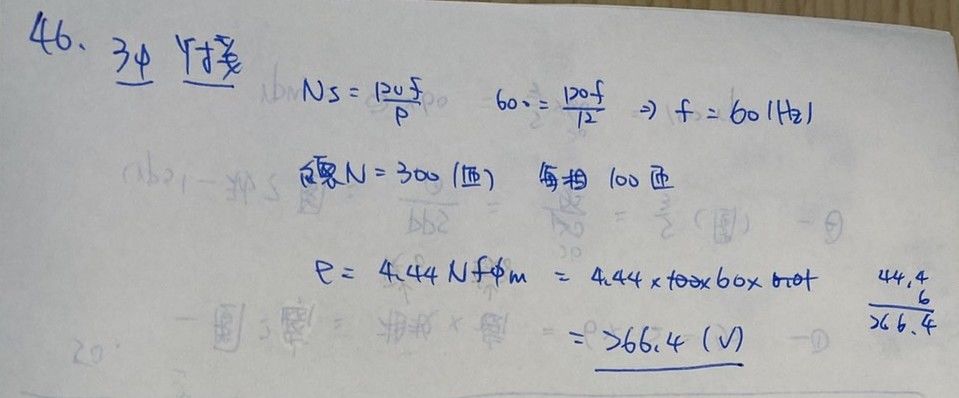 46. 3φ Y接
Ns = 120f/P 600 = 120f/12 ⇒ f = 60 (Hz)
N = 300 (匝) 每相 100 匝
e = 4.44 N f φm = 4.44 × 100 × 60 × 0.01
44.4
6
266.4
= 266.4 (V)
20.